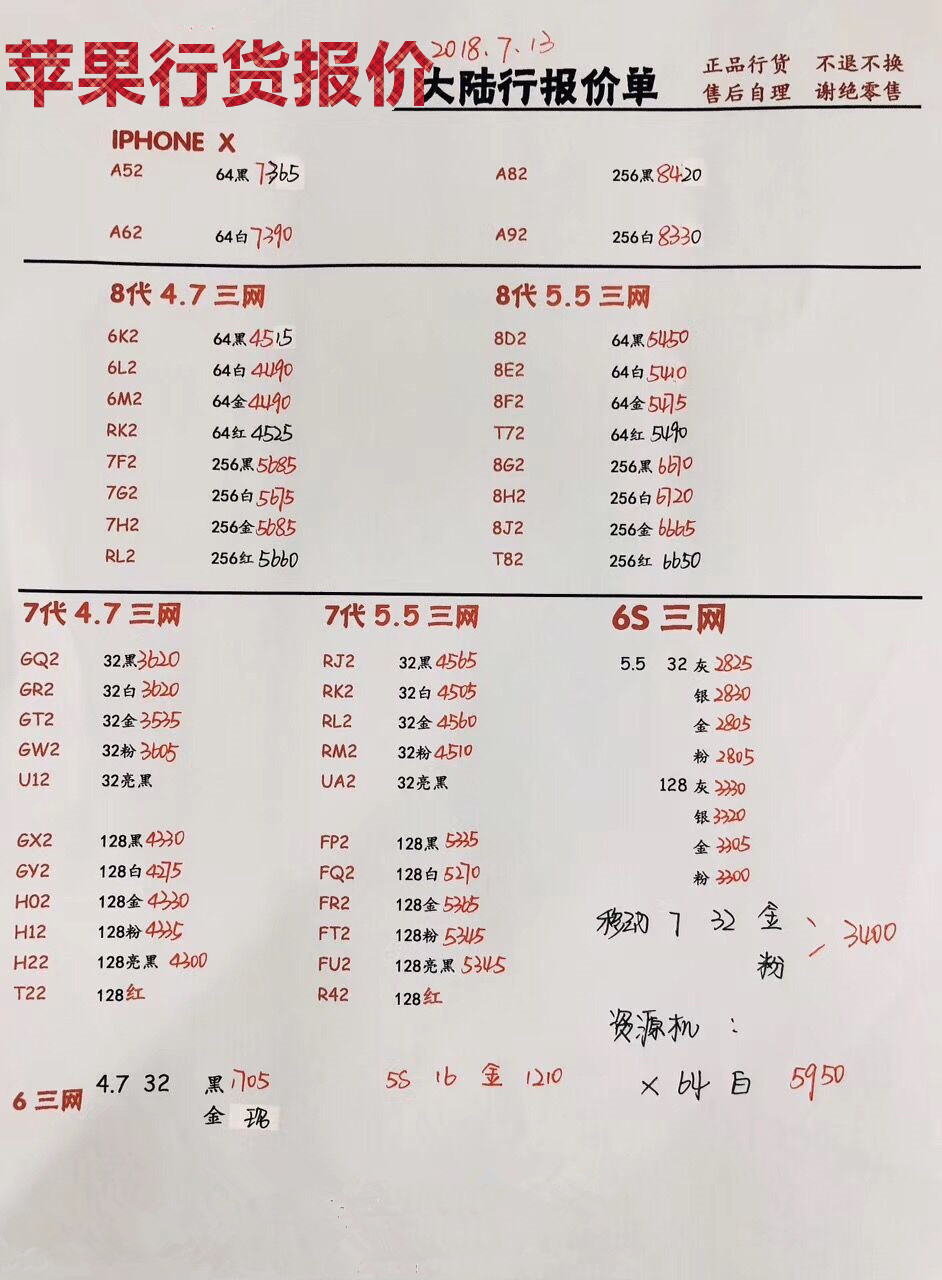 苹果行货报价
2018.7.13
大陆行报价单
正品行货 不退不换
售后自理 谢绝零售
IPHONE X
A52 64黑 7365 A82 256黑 8420
A62 64白 7390 A92 256白 8330
8代 4.7 三网 8代 5.5 三网
6K2 64黑 4515 8D2 64黑 5450
6L2 64白 4490 8E2 64白 5410
6M2 64金 4490 8F2 64金 5475
RK2 64红 4525 T72 64红 5490
7F2 256黑 5685 8G2 256黑 6670
7G2 256白 5675 8H2 256白 6720
7H2 256金 5685 8J2 256金 6665
RL2 256红 5660 T82 256红 6650
7代 4.7 三网 7代 5.5 三网 6S 三网
GQ2 32黑 3620 RJ2 32黑 4565 5.5 32 灰 2825
GR2 32白 3620 RK2 32白 4505 银 2830
GT2 32金 3535 RL2 32金 4560 金 2805
GW2 32粉 3605 RM2 32粉 4510 粉 2805
U12 32亮黑 UA2 32亮黑 128 灰 3330
银 3320
GX2 128黑 4330 FP2 128黑 5335 金 3305
GY2 128白 4275 FQ2 128白 5270 粉 3300
H02 128金 4330 FR2 128金 5365
H12 128粉 4335 FT2 128粉 5345
H22 128亮黑 4300 FU2 128亮黑 5345
T22 128红 R42 128红
移动 7 32 金
粉 3400
资源机：
X 64 白 5950
6 三网 4.7 32 黑 1705 5S 16 金 1210
金 现